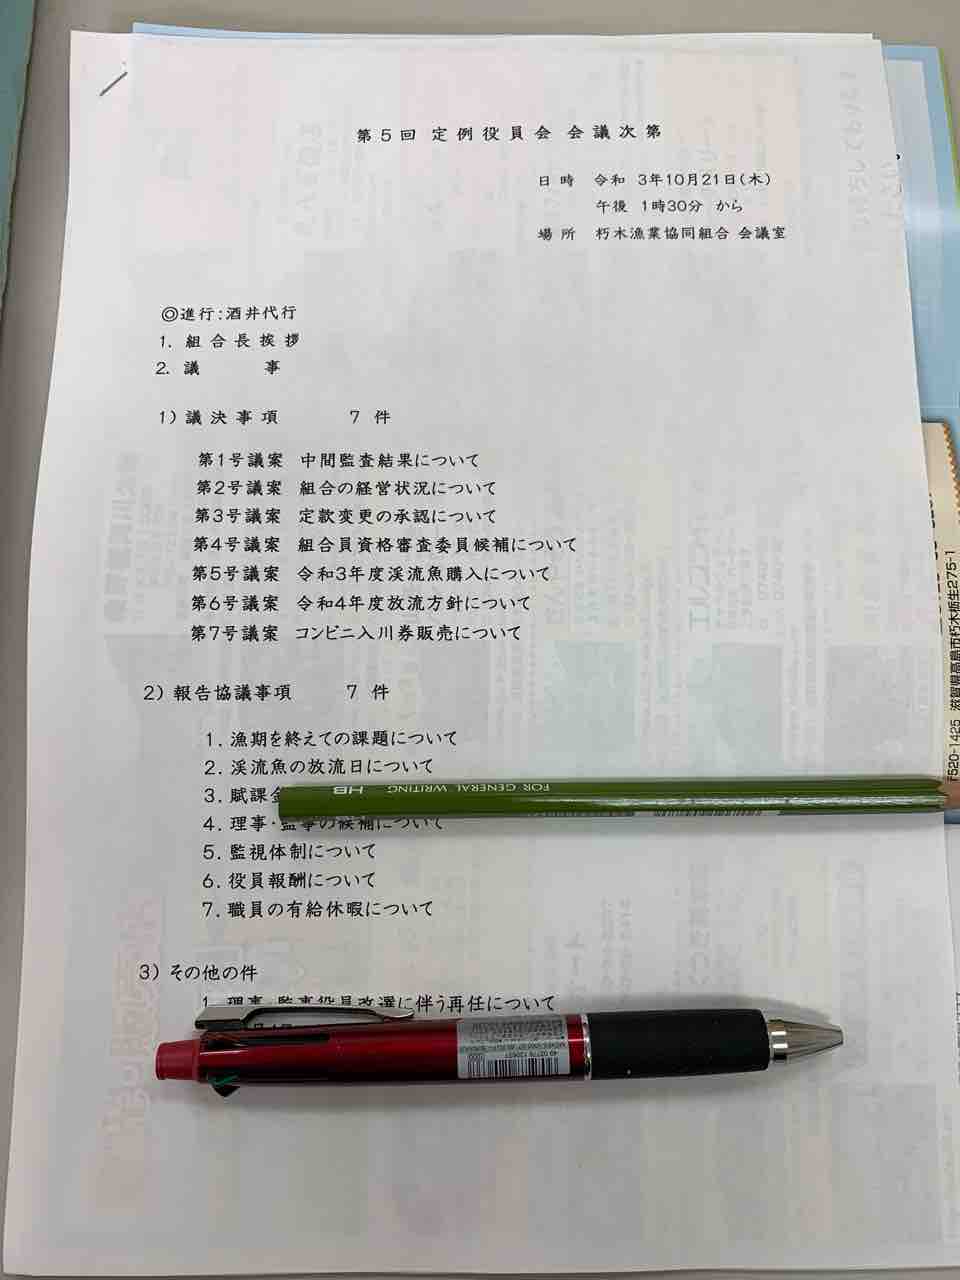 第5回 定例役員会 会議次第
日時 令和 3年10月21日(木)
午後 1時30分 から
場所 朽木漁業協同組合 会議室
◎進行:酒井代行
1. 組合長挨拶
2. 議 事
1) 議決事項 7 件
第1号議案 中間監査結果について
第2号議案 組合の経営状況について
第3号議案 定款変更の承認について
第4号議案 組合員資格審査委員候補について
第5号議案 令和3年度渓流魚購入について
第6号議案 令和4年度放流方針について
第7号議案 コンビニ入川券販売について
2) 報告協議事項 7 件
1. 漁期を終えての課題について
2. 渓流魚の放流日について
3. 賦課金
4. 理事・監事の候補について
5. 監視体制について
6. 役員報酬について
7. 職員の有給休暇について
3) その他の件
1. 理事・監事役員改選に伴う再任について
FOR GENERAL WRITING HB
〒520-1425 滋賀県高島市朽木栃生275-1